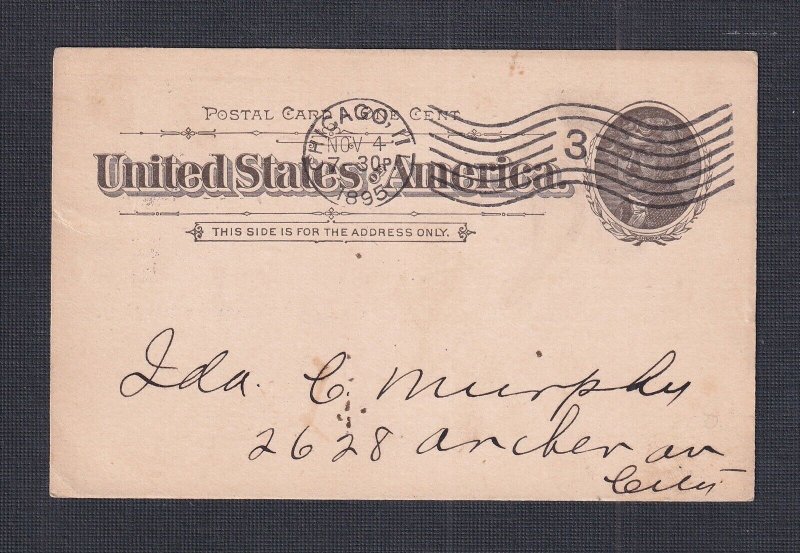 POSTAL CARD ONE CENT
CHICAGO, ILL
NOV 4
7 30P
1895
3
United States of America.
THIS SIDE IS FOR THE ADDRESS ONLY.
Ida. C. Murphy
2628 Archer av
City